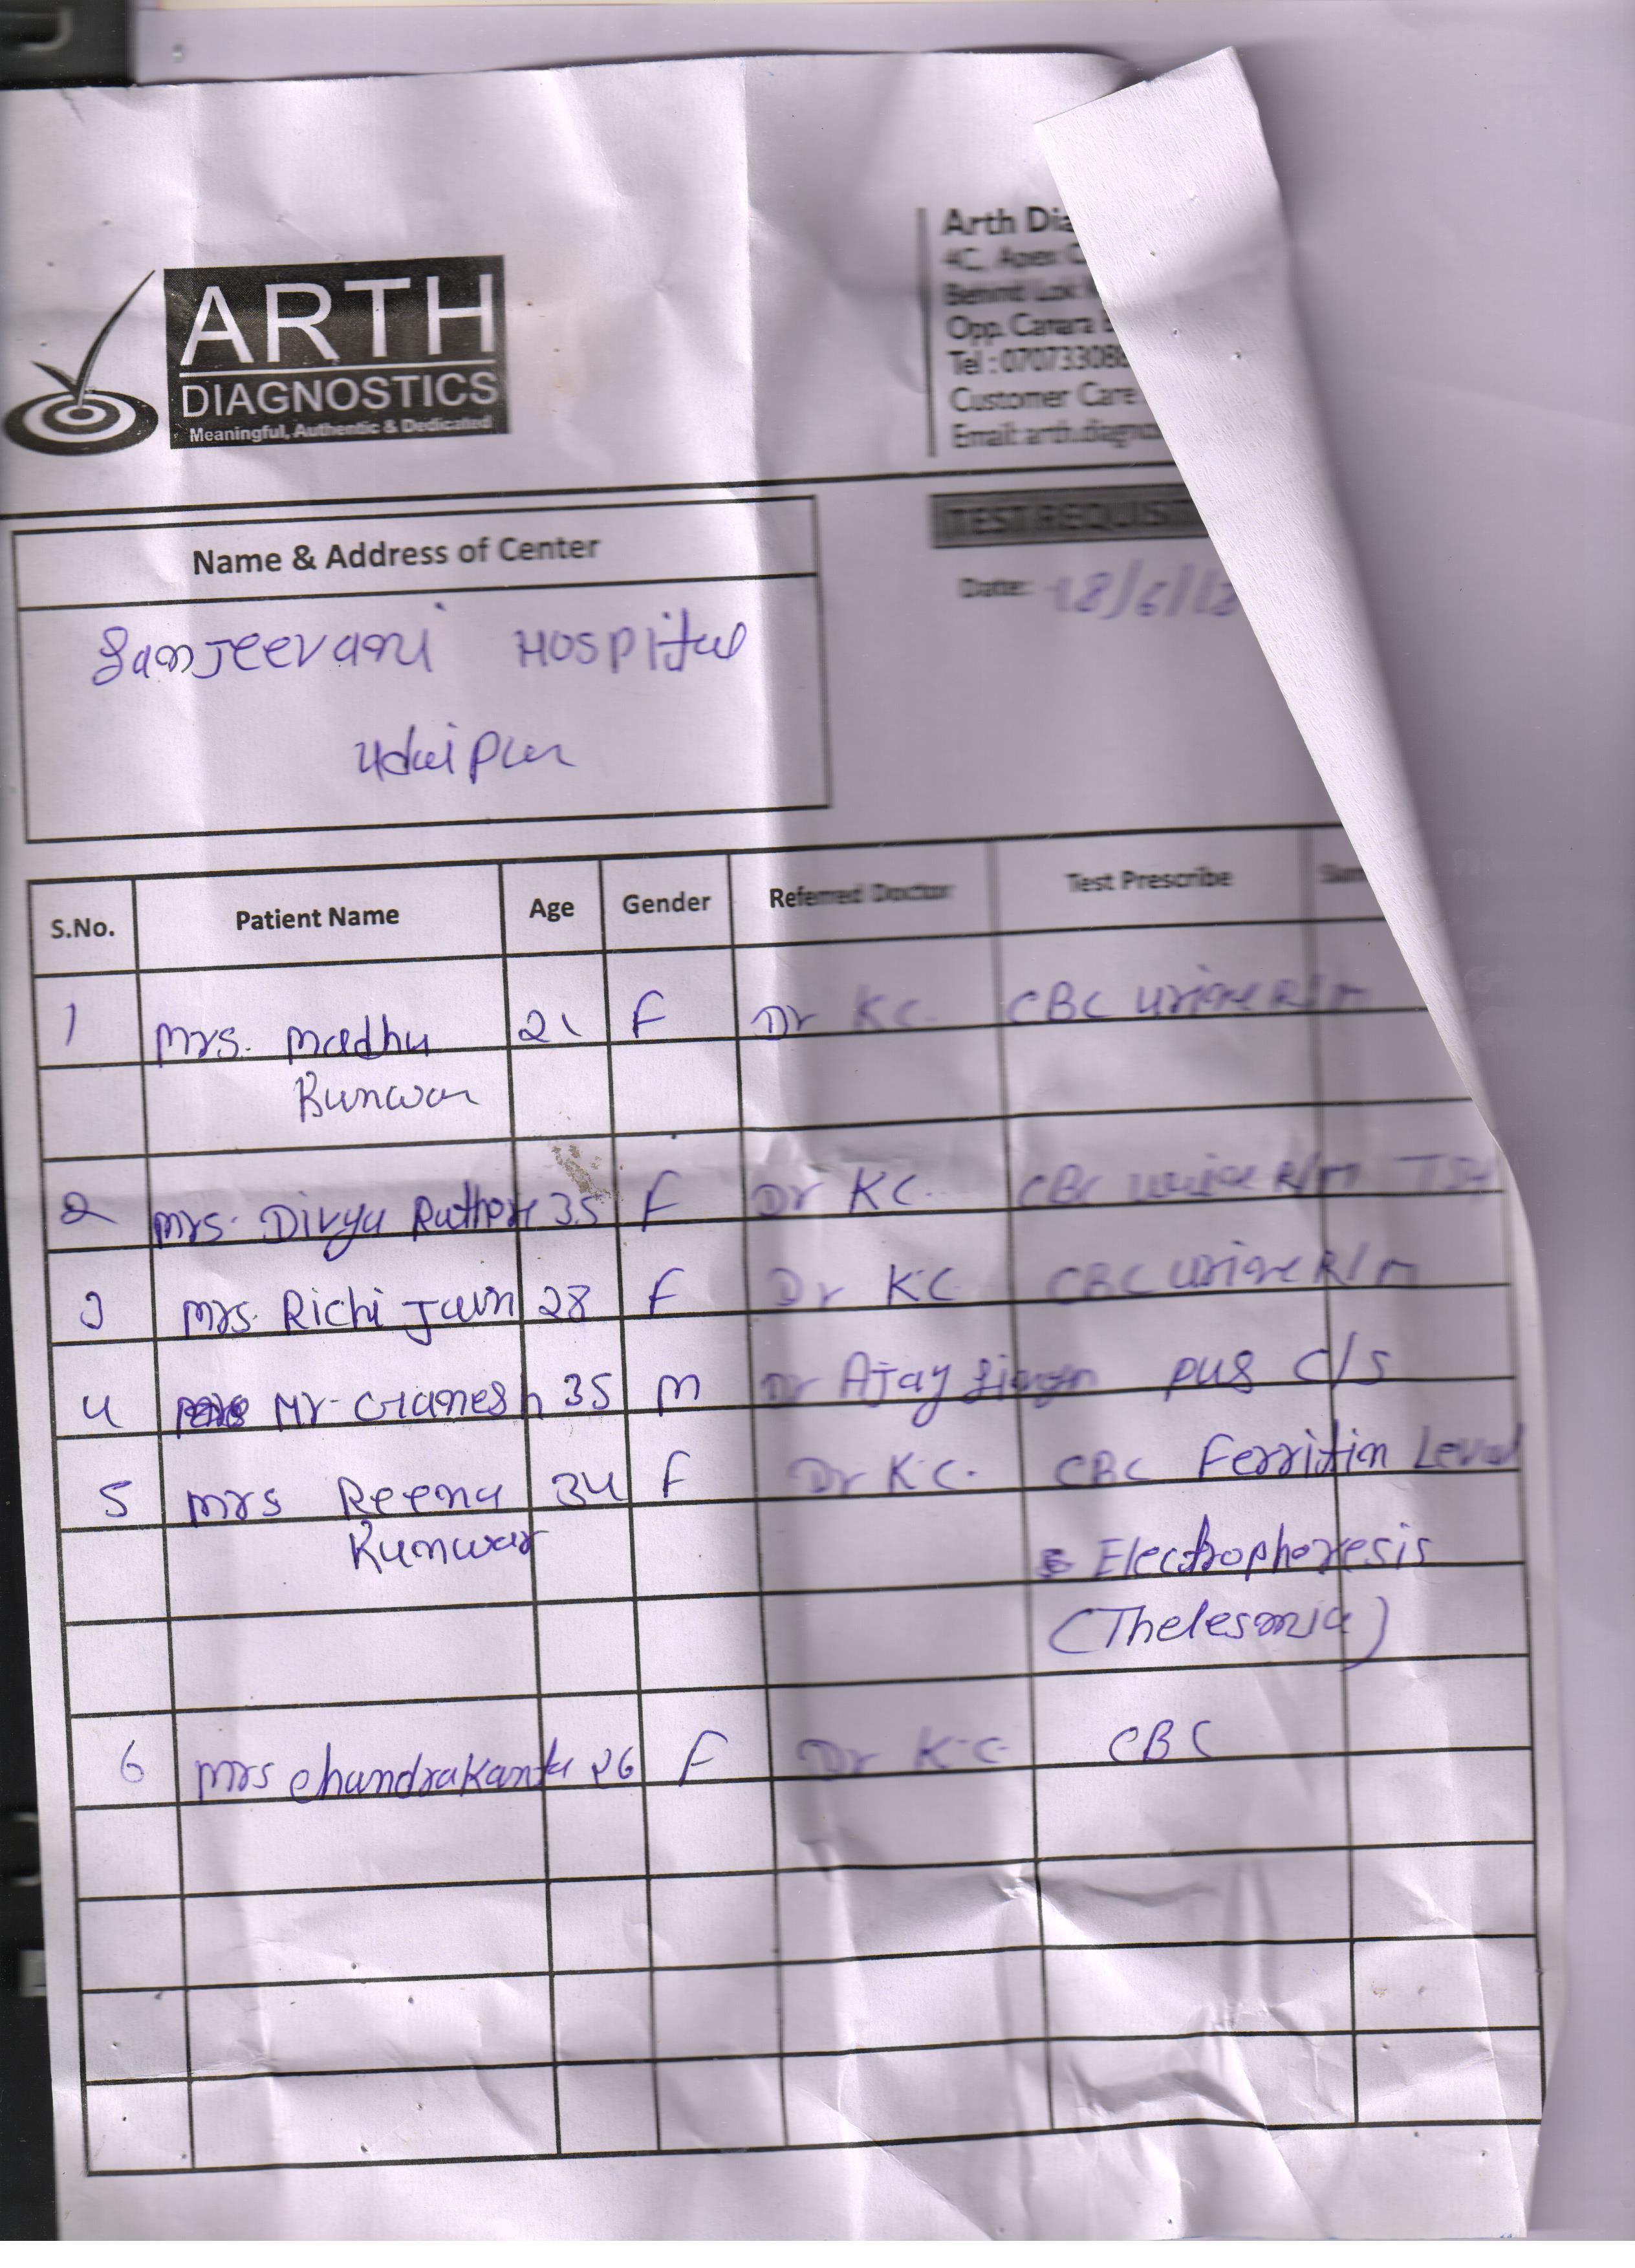 ARTH
DIAGNOSTICS
Meaningful, Authentic & Dedicated
Arth Dia
4C, Apex C
Behind Lok
Opp. Canara B
Tel : 070733088
Customer Care
Email: arth.diagno
TEST REQUISIT
Name & Address of Center
Date: 18/6/18
Sanjeevani Hospital
Udaipur
S.No. Patient Name Age Gender Referred Doctor Test Prescribe
1 Mrs. Madhu 21 F Dr KC. CBC Urine R/M
Kunwar
2 Mrs. Divya Rathore 35 F Dr KC. CBC Urine R/M TSH
3 Mrs. Richi Jain 28 F Dr KC CBC Urine R/M
4 Mr. Ganesh 35 M Dr Ajay Pus C/S
5 Mrs Reena 34 F Dr K.C. CBC Ferritin Level
Kunwar Electrophoresis
(Thelesmia)
6 Mrs Chandrakanta 26 F Dr K.C. CBC